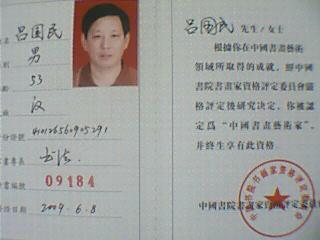 名 吕国民
别 男
龄 53
族 汉
份證號
書專長 书法
書編號 09184
證日期 2009.6.8
吕国民 先生/女士
根據你在中國書畫藝術
領域所取得的成就,經中國
書院書畫家資格評定委員會嚴
格評定後研究決定,你被認
定爲“中國書畫藝術家”,
并終生享有此資格。
中國書院書畫家資格評定委員會